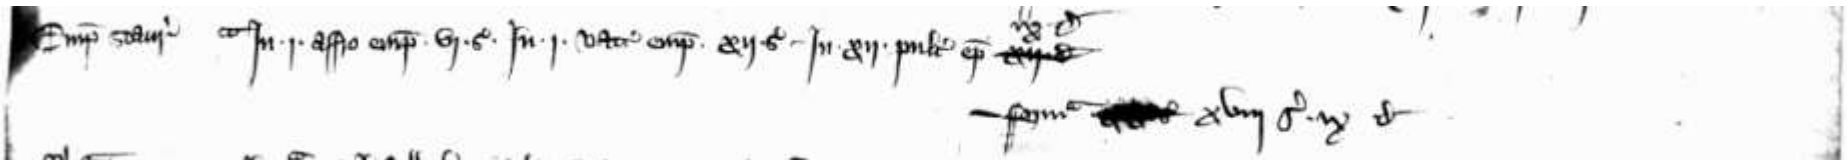 Emp̄ stauꝛ̉ In .j. affro emp̄ .vj. s̉. In .j. vacc̉ emp̄. xij. s̉. In xij. pulc̉ ep̄ ix. d̉
sum̉ xviij s̉. ix d̉